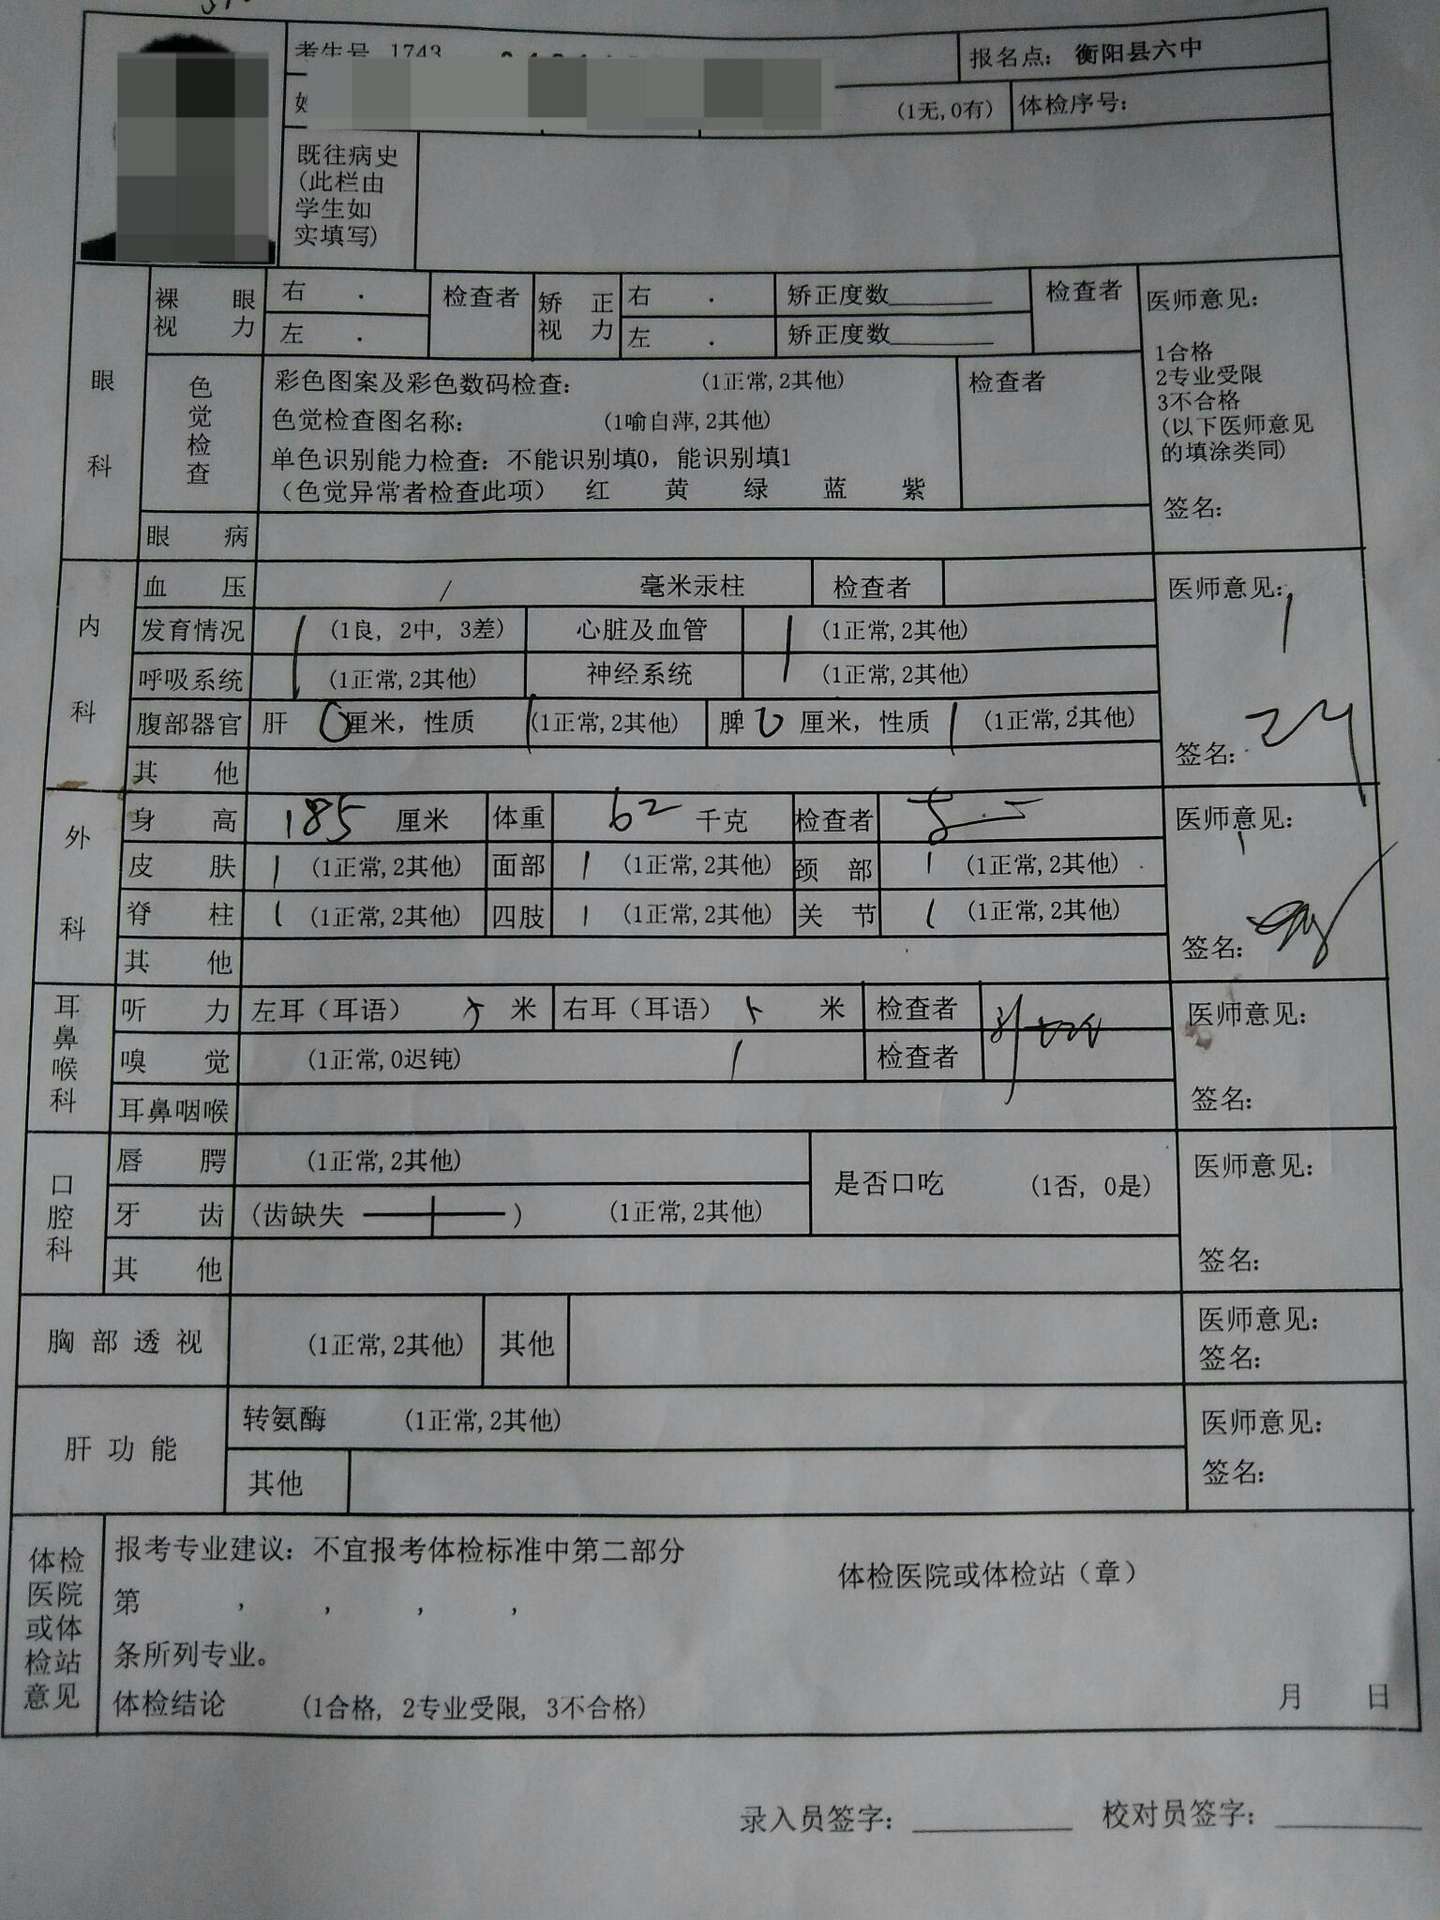 考生号 1743
报名点：衡阳县六中
(1无,0有) 体检序号：
既往病史
(此栏由
学生如
实填写)
眼科
裸眼视力 右 . 检查者 矫正视力 右 . 矫正度数______ 检查者
左 . 左 . 矫正度数______
医师意见：
1合格
2专业受限
3不合格
(以下医师意见
的填涂类同)
签名：
色觉检查
彩色图案及彩色数码检查： (1正常,2其他) 检查者
色觉检查图名称： (1喻自萍,2其他)
单色识别能力检查：不能识别填0，能识别填1
（色觉异常者检查此项） 红 黄 绿 蓝 紫
眼病
内科
血压 / 毫米汞柱 检查者
医师意见：1
发育情况 1 (1良, 2中, 3差) 心脏及血管 1 (1正常,2其他)
呼吸系统 1 (1正常,2其他) 神经系统 1 (1正常,2其他)
腹部器官 肝 0 厘米，性质 1 (1正常,2其他) 脾 0 厘米，性质 1 (1正常,2其他)
签名：
其他
外科
身高 185 厘米 体重 62 千克 检查者
医师意见：1
皮肤 1 (1正常,2其他) 面部 1 (1正常,2其他) 颈部 1 (1正常,2其他)
脊柱 1 (1正常,2其他) 四肢 1 (1正常,2其他) 关节 1 (1正常,2其他)
签名：
其他
耳鼻喉科
听力 左耳（耳语） 5 米 右耳（耳语） 5 米 检查者
医师意见：
嗅觉 (1正常,0迟钝) 1 检查者
签名：
耳鼻咽喉
口腔科
唇腭 (1正常,2其他) 是否口吃 (1否, 0是)
医师意见：
牙齿 (齿缺失 ) (1正常,2其他)
其他
签名：
胸部透视 (1正常,2其他) 其他
医师意见：
签名：
肝功能
转氨酶 (1正常,2其他)
医师意见：
其他
签名：
体检医院或体检站意见
报考专业建议：不宜报考体检标准中第二部分
体检医院或体检站（章）
第 , , , ,
条所列专业。
体检结论 (1合格, 2专业受限, 3不合格)
月 日
录入员签字：______ 校对员签字：______